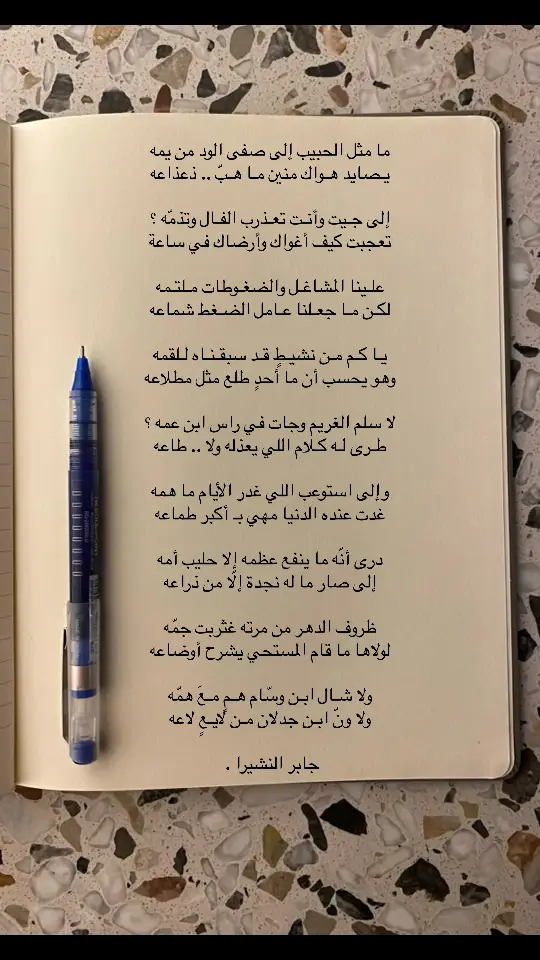 ما مثل الحبيب إلى صفى الود من يمه
يصايد هواك منين ما هبّ .. ذعذاعه
إلى جيت وأنت تعذرب الفال وتذمّه ؟
تعجبت كيف أغواك وأرضاك في ساعة
علينا المشاغل والضغوطات ملتمه
لكن ما جعلنا عامل الضغط شماعه
يا كم من نشيطٍ قد سبقناه للقمه
وهو يحسب أن ما أحدٍ طلع مثل مطلاعه
لا سلم الغريم وجات في راس ابن عمه ؟
طرى له كلام اللي يعذله ولا .. طاعه
وإلى استوعب اللي غدر الأيام ما همه
غدت عنده الدنيا مهي بـ أكبر طماعه
درى أنّه ما ينفع عظمه إلا حليب أمه
إلى صار ما له نجدة إلّا من ذراعه
ظروف الدهر من مرته غثربت جمّه
لولاها ما قام المستحي يشرح أوضاعه
ولا شال ابن وسّام همٍ معَ همّه
ولا ونّ ابن جدلان من لايعٍ لاعه
جابر النشيرا .